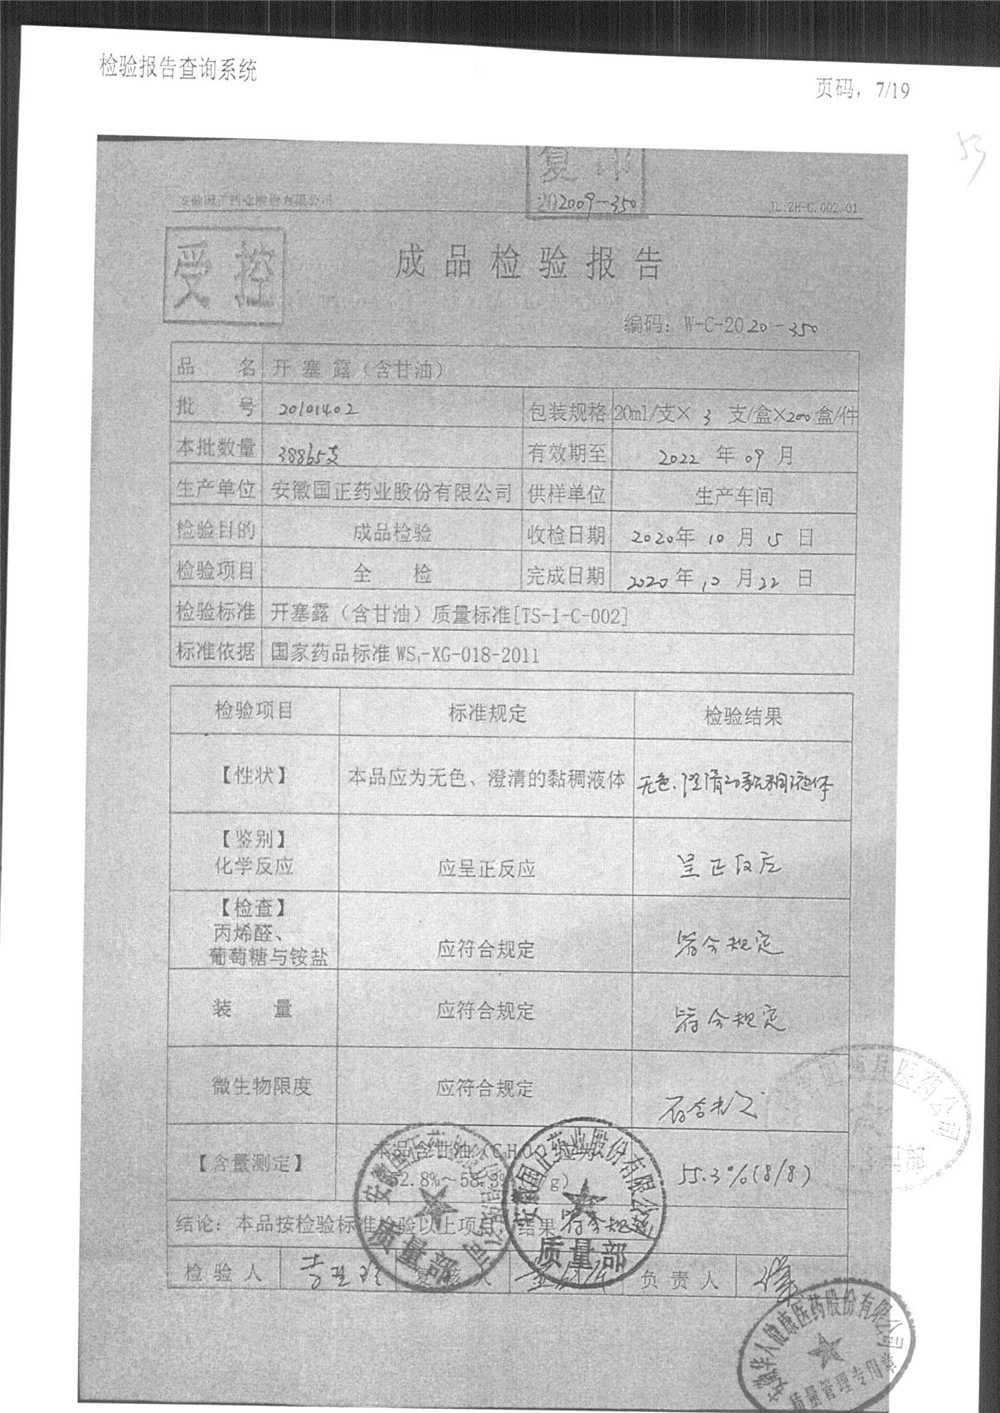 检验报告查询系统
页码，7/19
53
复印
202009-350
安徽国正药业股份有限公司
JL.ZH-C.002.01
受控
成品检验报告
编码：W-C-2020-350
品名 开塞露（含甘油）
批号 20101402 包装规格 20ml/支×3支/盒×200盒/件
本批数量 38865支 有效期至 2022年09月
生产单位 安徽国正药业股份有限公司 供样单位 生产车间
检验目的 成品检验 收检日期 2020年10月15日
检验项目 全检 完成日期 2020年10月22日
检验标准 开塞露（含甘油）质量标准[TS-1-C-002]
标准依据 国家药品标准WS₁-XG-018-2011
检验项目 标准规定 检验结果
【性状】 本品应为无色、澄清的黏稠液体 无色、澄清的黏稠液体
【鉴别】
化学反应 应呈正反应 呈正反应
【检查】
丙烯醛、
葡萄糖与铵盐 应符合规定 符合规定
装量 应符合规定 符合规定
微生物限度 应符合规定 符合规定
【含量测定】 品含甘油 55.3%(g/g)
结论：本品按检验标准检验以上项目，结果符合规定
检验人 人 负责人
安徽国正药业股份有限公司
质量部
质量部
安徽华人健康医药股份有限公司
质量管理专用章